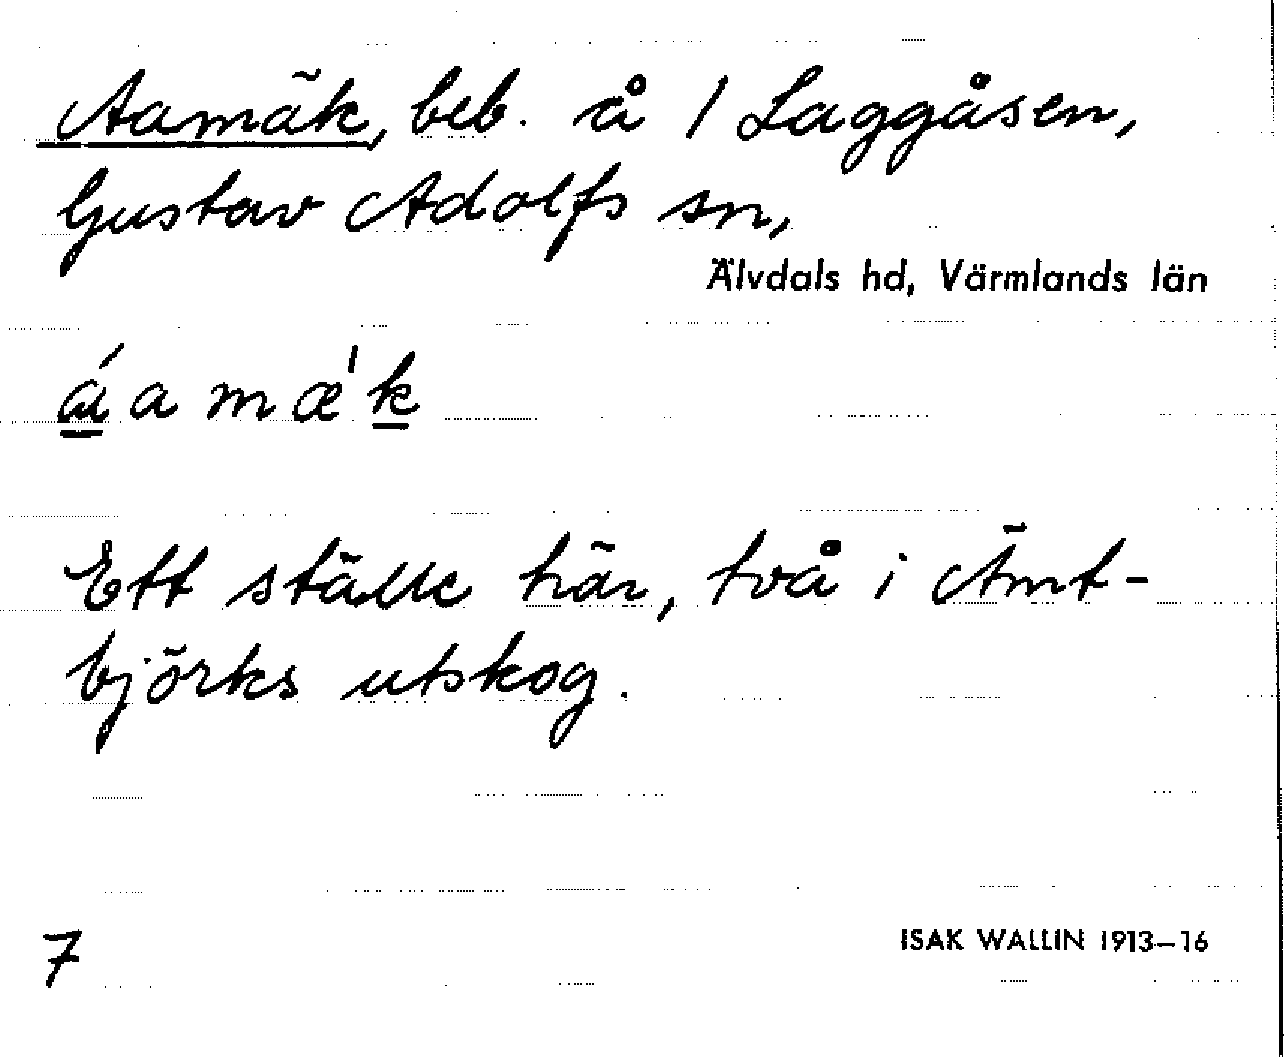 Aamäk, beb. å 1 Laggåsen,
Gustav Adolfs sn,
Älvdals hd, Värmlands län
áamæ'k
Ett ställe här, två i Ämt-
björks utskog.
7
ISAK WALLIN 1913–16